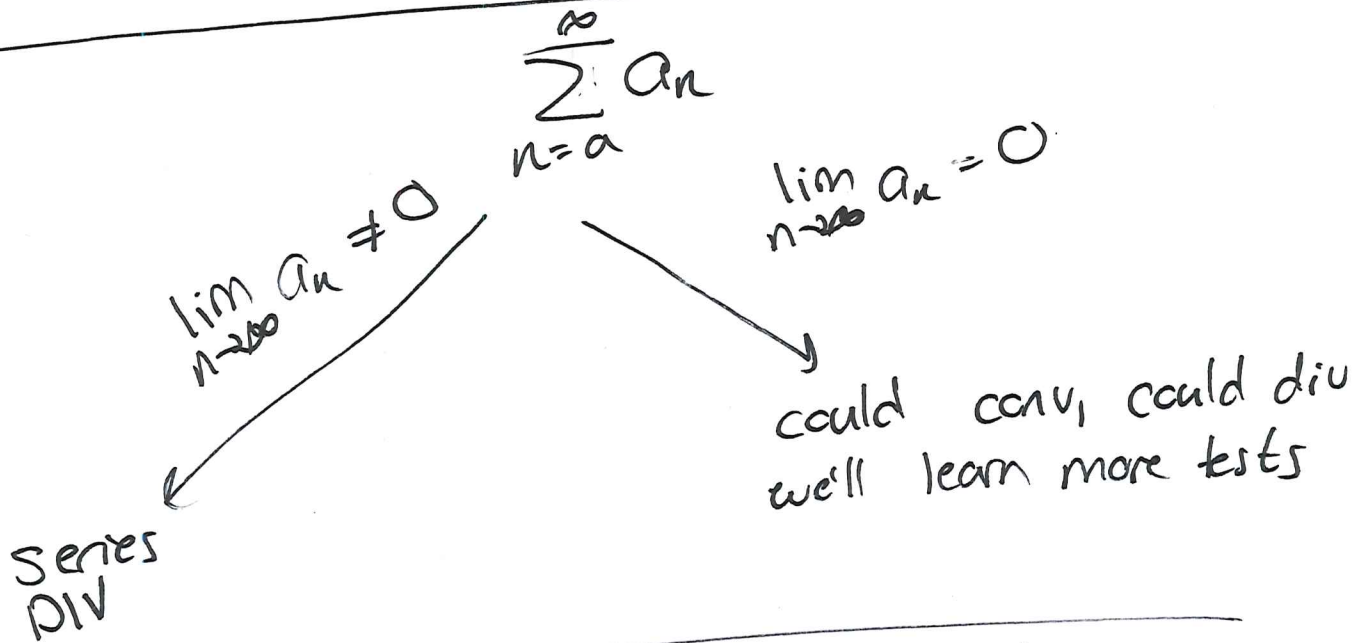 ∞
∑ aₙ
n=a
lim aₙ ≠ 0
n→∞
lim aₙ = 0
n→∞
could conv, could div
we'll learn more tests
series
DIV